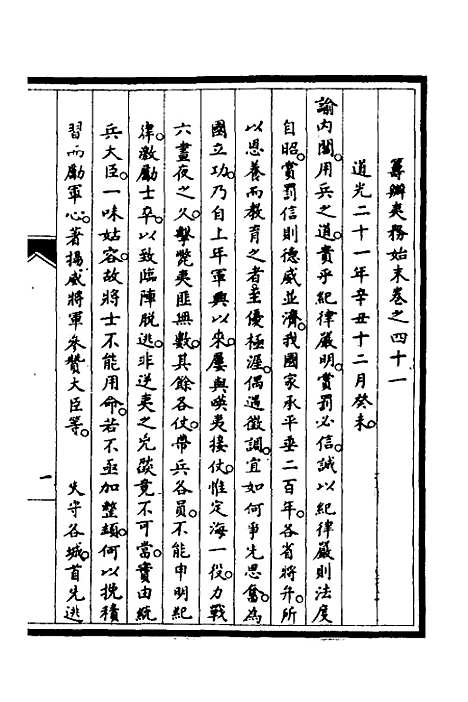 籌辦夷務始末卷之四十一
道光二十一年辛丑十二月癸未。
諭內閣。用兵之道。貴乎紀律嚴明。賞罰必信。誠以紀律嚴則法度
自昭。賞罰信則德威並濟。我國家承平垂二百年。各省將弁。所
以恩養而教育之者。至優極渥。偶遇徵調。宜如何爭先思奮。為
國立功。乃自上年軍興以來。屢與㗎夷接仗。惟定海一役。力戰
六晝夜之久。擊斃夷匪無數。其餘各仗。帶兵各員。不能申明紀
律。激勵士卒。以致臨陣脫逃。非逆夷之兇燄竟不可當。實由統
兵大臣。一味姑容。故將士不能用命。若不亟加整頓。何以挽積
習而勵軍心。著揚威將軍參贊大臣等。 失守各城。首先逃
一